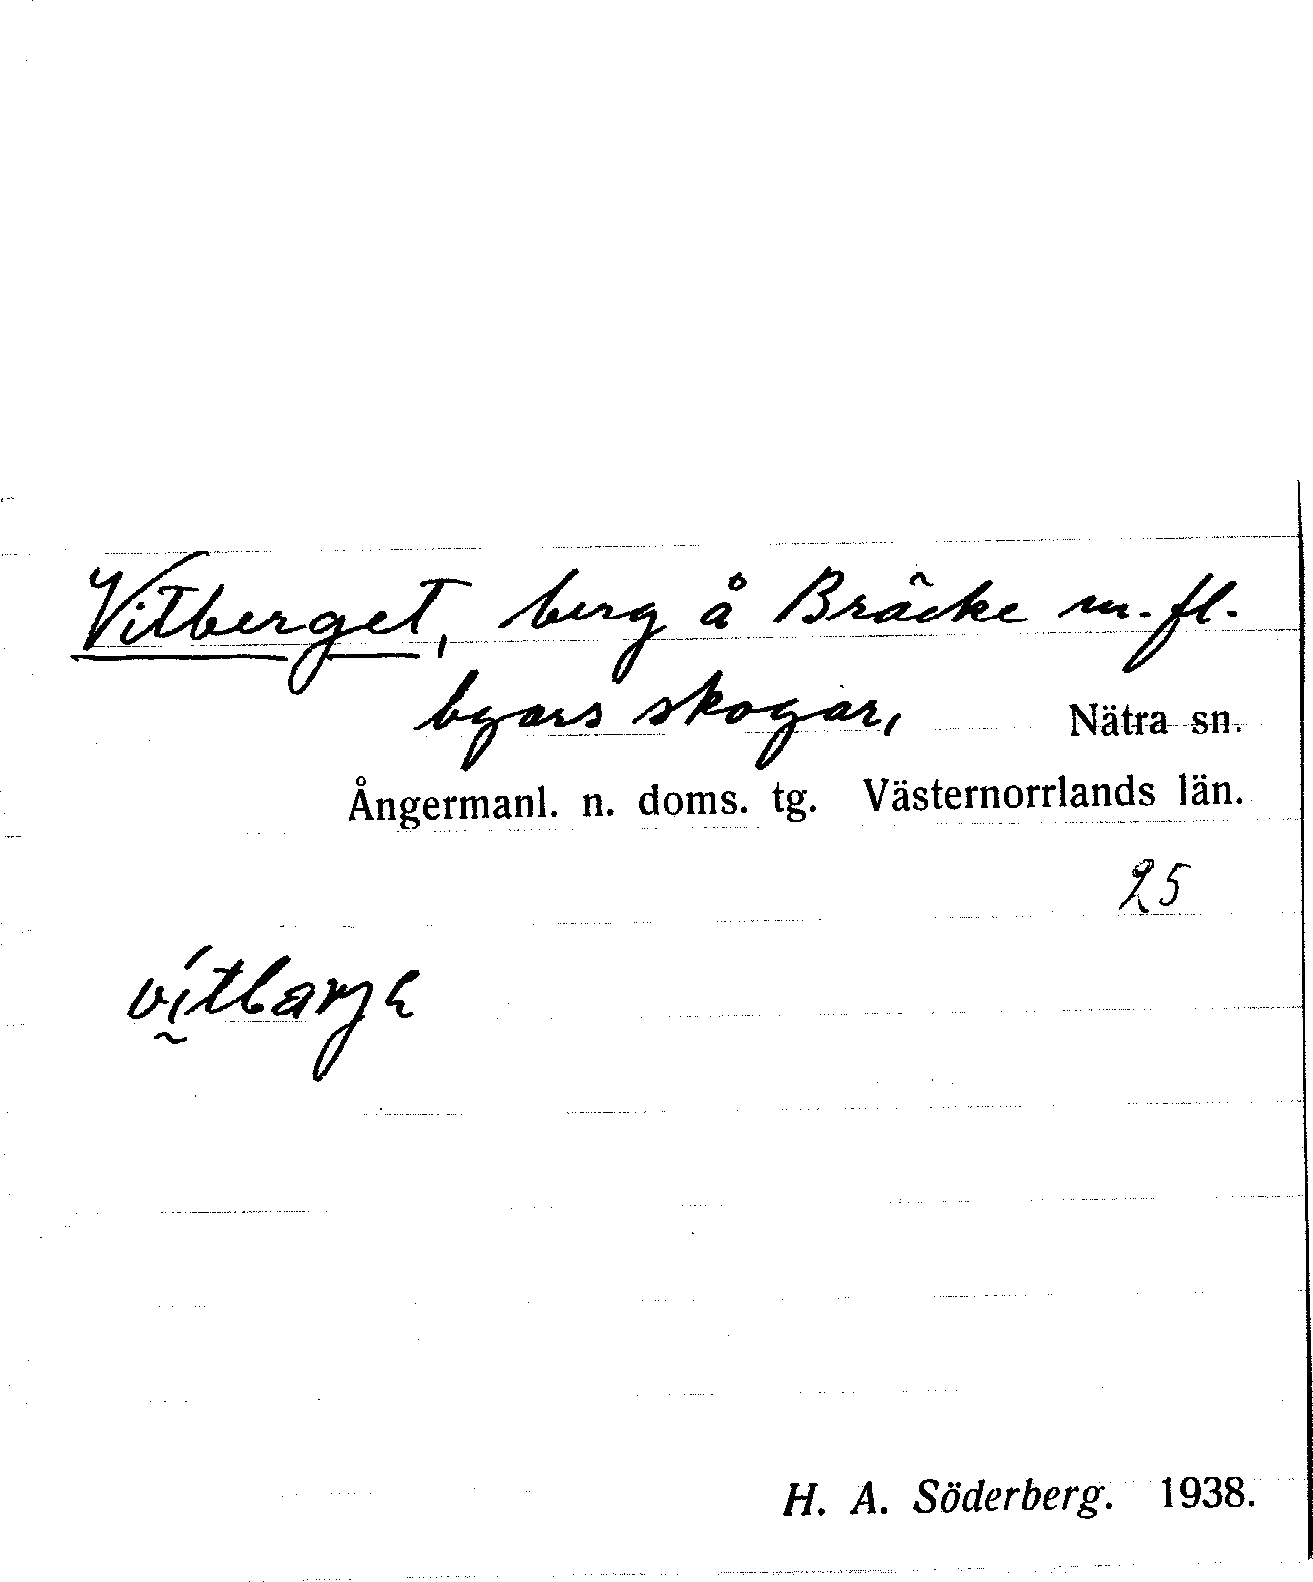 Vitberget, berg å Bräcke m. fl.
byars skogar, Nätra sn.
Ångermanl. n. doms. tg. Västernorrlands län.
25
H. A. Söderberg. 1938.